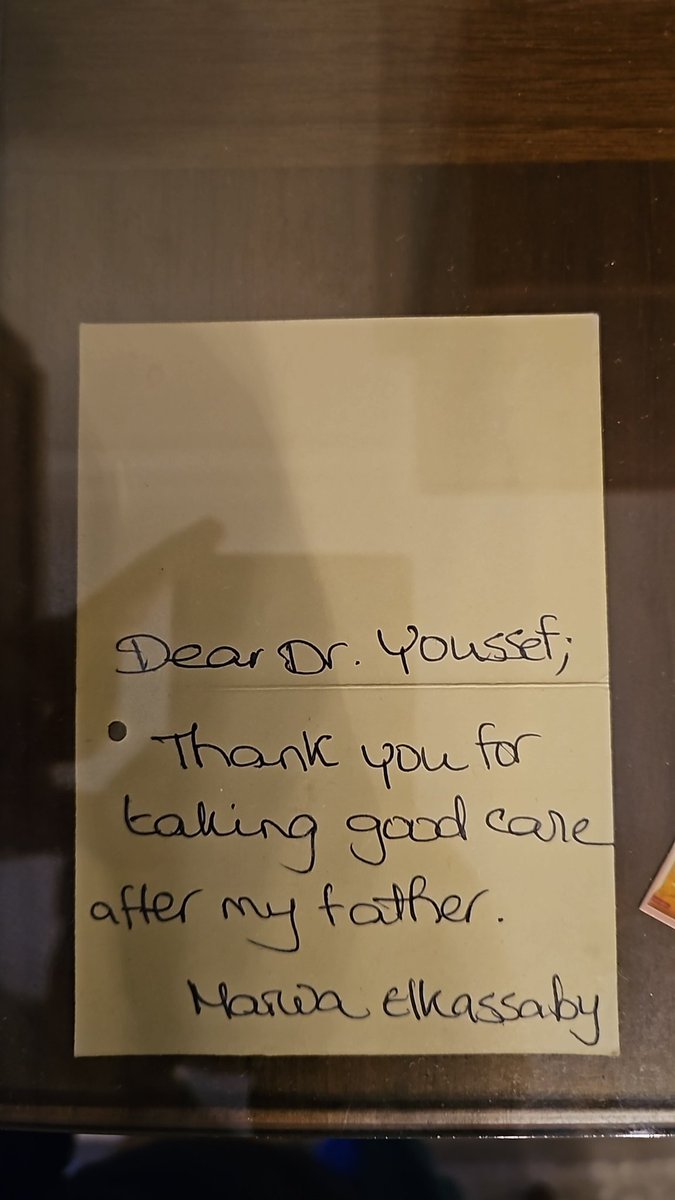 Dear Dr. Youssef;
Thank you for
taking good care
after my father.
Marwa Elkassaby